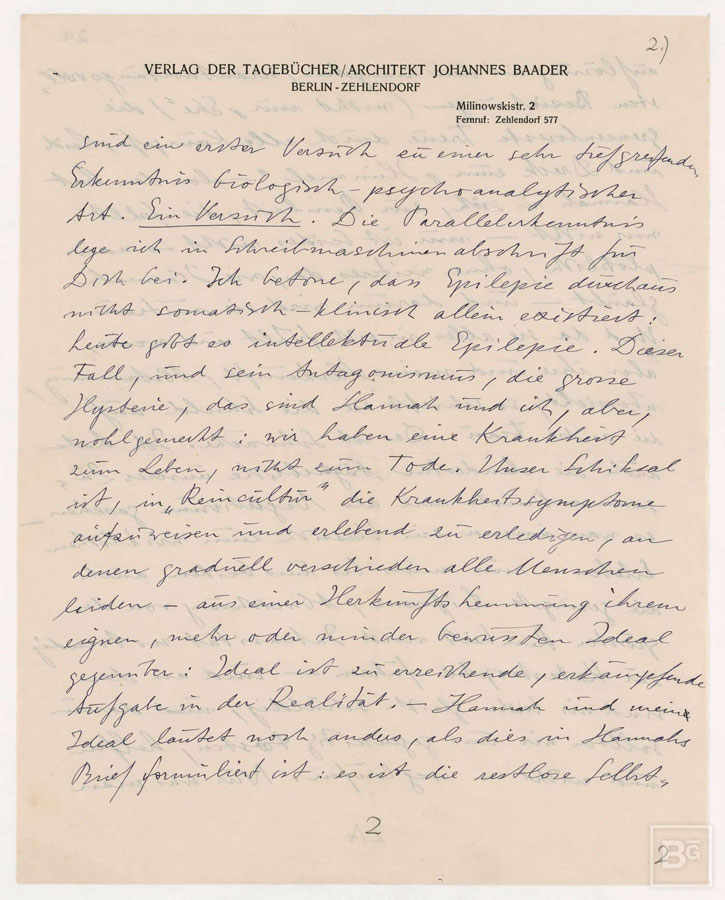 2.)
VERLAG DER TAGEBÜCHER/ARCHITEKT JOHANNES BAADER
BERLIN-ZEHLENDORF
Milinowskistr. 2
Fernruf: Zehlendorf 577
sind ein erster Versuch zu einer sehr tiefgreifenden
Erkenntnis biologisch-psychoanalytischer
Art. Ein Versuch. Die Parallelerkenntnis
lege ich in Schreibmaschinenabschrift für
Dich bei. Ich betone, dass Epilepsie durchaus
nicht somatisch-klinisch allein existiert:
heute gibt es intellektuale Epilepsie. Dieser
Fall, und sein Antagonismus, die grosse
Hysterie, das sind Hannah und ich, aber,
wohlgemerkt: wir haben eine Krankheit
zum Leben, nicht zum Tode. Unser Schiksal
ist, in „Reincultur" die Krankheitssymptome
aufzuweisen und erlebend zu erledigen, an
denen graduell verschieden alle Menschen
leiden – aus einer Herkunftshemmung ihrem
eignen, mehr oder minder bewussten Ideal
gegenüber: Ideal ist zu erreichende, erkämpfende
Aufgabe in der Realität. – Hannah und mein
Ideal lautet noch anders, als dies in Hannahs
Brief formuliert ist: es ist die restlose Selbst-
2
2
BG